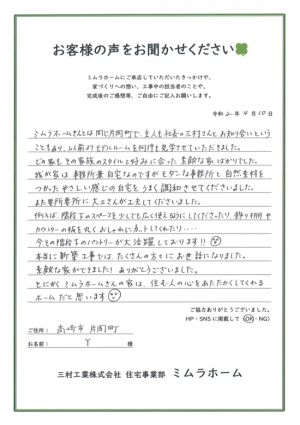 お客様の声をお聞かせください
ミムラホームにご来店していただいたきっかけや、
家づくりへの想い、工事中の担当者のことや、
完成後のご感想等、ご自由にご記入お願いします。
令和 2 年 4 月 10 日
ミムラホームさんとは同じ片岡町で、主人も社長の三村さんとお知り合いという
こともあり、以前よりモデルルームを何件も見学させていただきました。
どの家もその家族のスタイルと好みに合った素敵な家ばかりでした。
我が家は事務所兼自宅なのですがモダンな事務所と自然素材を
つかったやさしい感じの自宅をうまく調和させてくださいました。
また要所要所に大工さんが工夫してくださいました。
例えば、階段下のスペースを少しでも広く使えるようにしてくださったり、飾り棚や
カウンターの板を丸くおしゃれに工夫してくれたり・・・
今その階段下のパントリーが大活躍しております!!
本当に新築工事では、たくさんの方々にお世話になりました。
素敵な家ができました!ありがとうございました。
とにかくミムラホームさんの家は、住む人の心をあたたかくしてくれる
ホームだと思います
ご協力ありがとうございました。
HP・SNSに掲載して(OK・NG)
ご住所: 高崎市 片岡町
お名前: Y 様
三村工業株式会社 住宅事業部 ミムラホーム